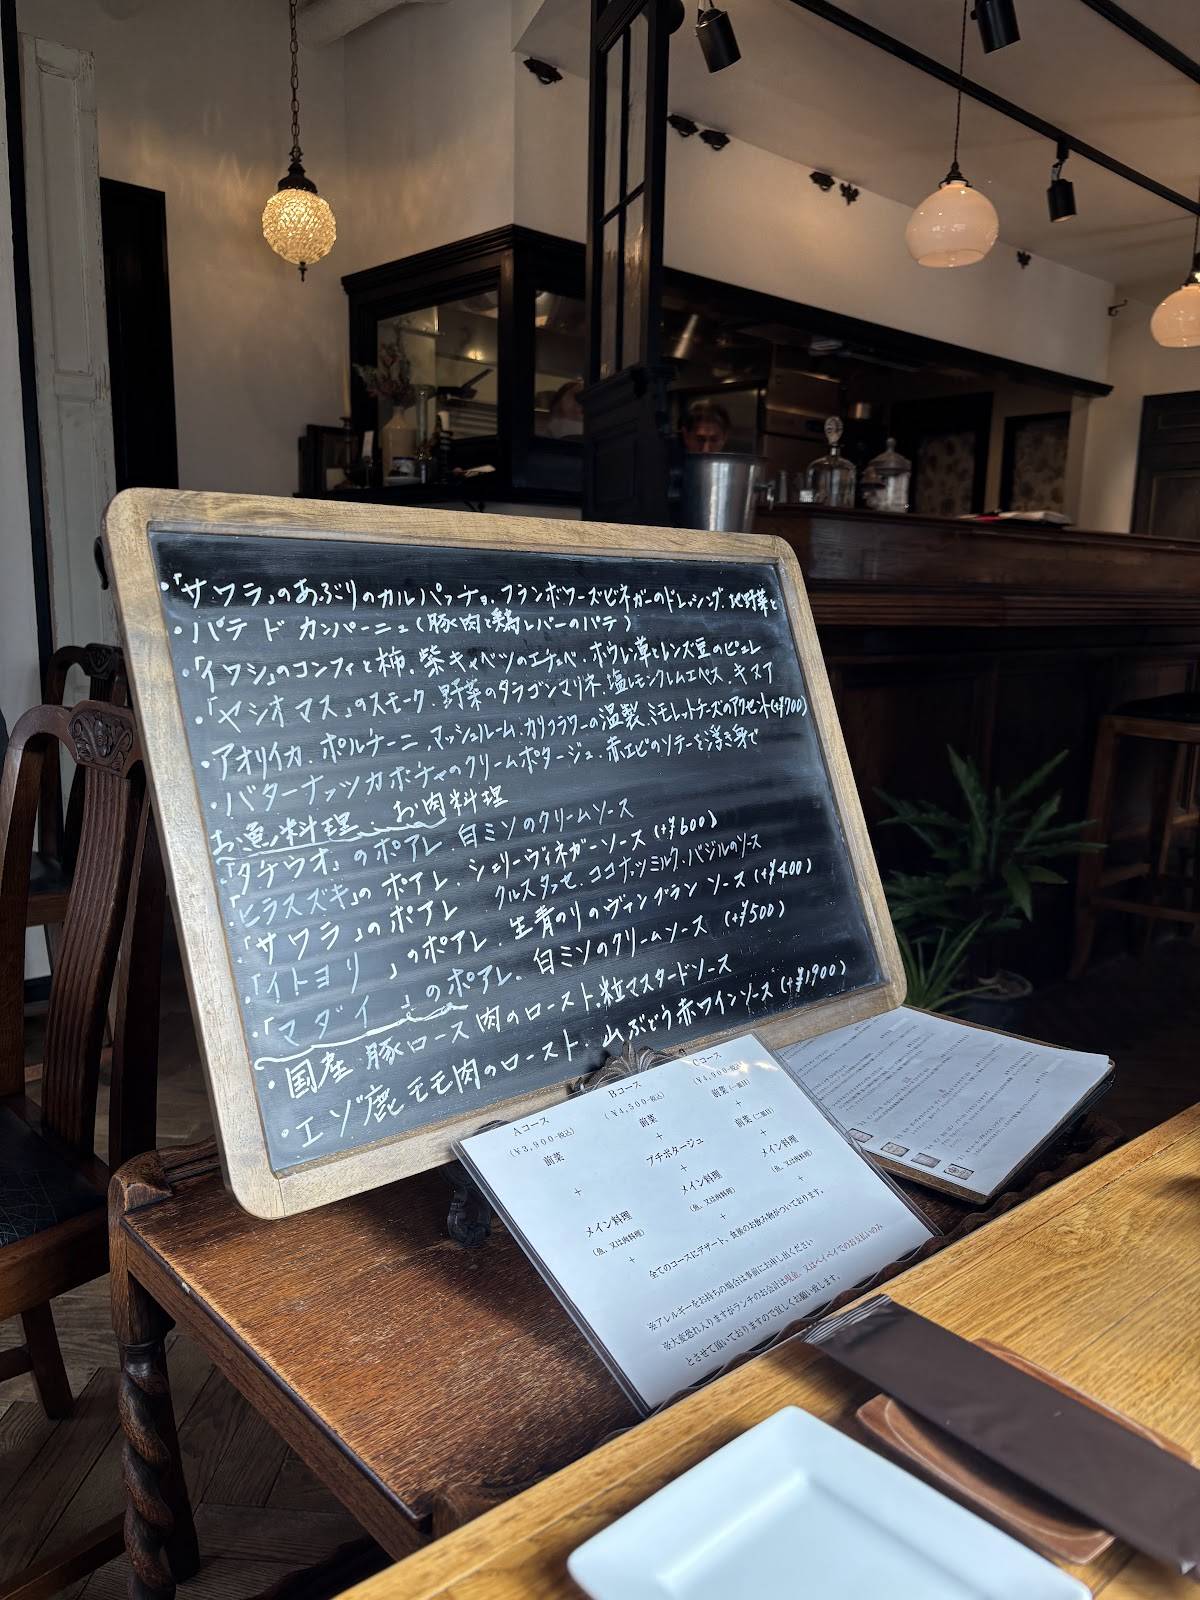 ・「サワラ」のあぶりのカルパッチョ.フランボワーズビネガーのドレッシング.地野菜と
・パテ ド カンパーニュ(豚肉と鶏レバーのパテ)
・「イワシ」のコンフィと柿.紫キャベツのエチュベ.ホウレン草とレンズ豆のピュレ
・「ヤシオマス」のスモーク.野菜のタラゴンマリネ.塩レモンクレムエペス.キヌア
・アオリイカ.ポルチーニ.マッシュルーム.カリフラワーの温製.ミモレットチーズのアクセント(+¥700)
・バターナッツカボチャのクリームポタージュ.赤エビのソテーを浮き身で
お魚料理 . お肉料理
・「タチウオ」のポアレ.白ミソのクリームソース
・「ヒラスズキ」のポアレ.シェリーヴィネガーソース(+¥600)
・「サワラ」のポアレ クルスタッセ.ココナッツミルク.バジルのソース
・「イトヨリ」のポアレ.生青のりのヴァンブランソース(+¥400)
・「マダイ」のポアレ.白ミソのクリームソース(+¥500)
・国産 豚ロース肉のロースト.粒マスタードソース
・エゾ鹿モモ肉のロースト.山ぶどう赤ワインソース(+¥1900)
Aコース
(¥3,900-税込)
前菜
+
メイン料理
(魚、又は肉料理)
+
Bコース
(¥4,500-税込)
前菜
+
プチポタージュ
+
メイン料理
(魚、又は肉料理)
+
Cコース
(¥4,900-税込)
前菜(一皿目)
+
前菜(二皿目)
+
メイン料理
(魚、又は肉料理)
+
全てのコースにデザート、食後のお飲み物がついております。
※アレルギーをお持ちの場合は事前にお申し出ください
※大変恐れ入りますがランチのお会計は現金、又はペイペイでのお支払いのみ
とさせて頂いておりますので宜しくお願い致します。